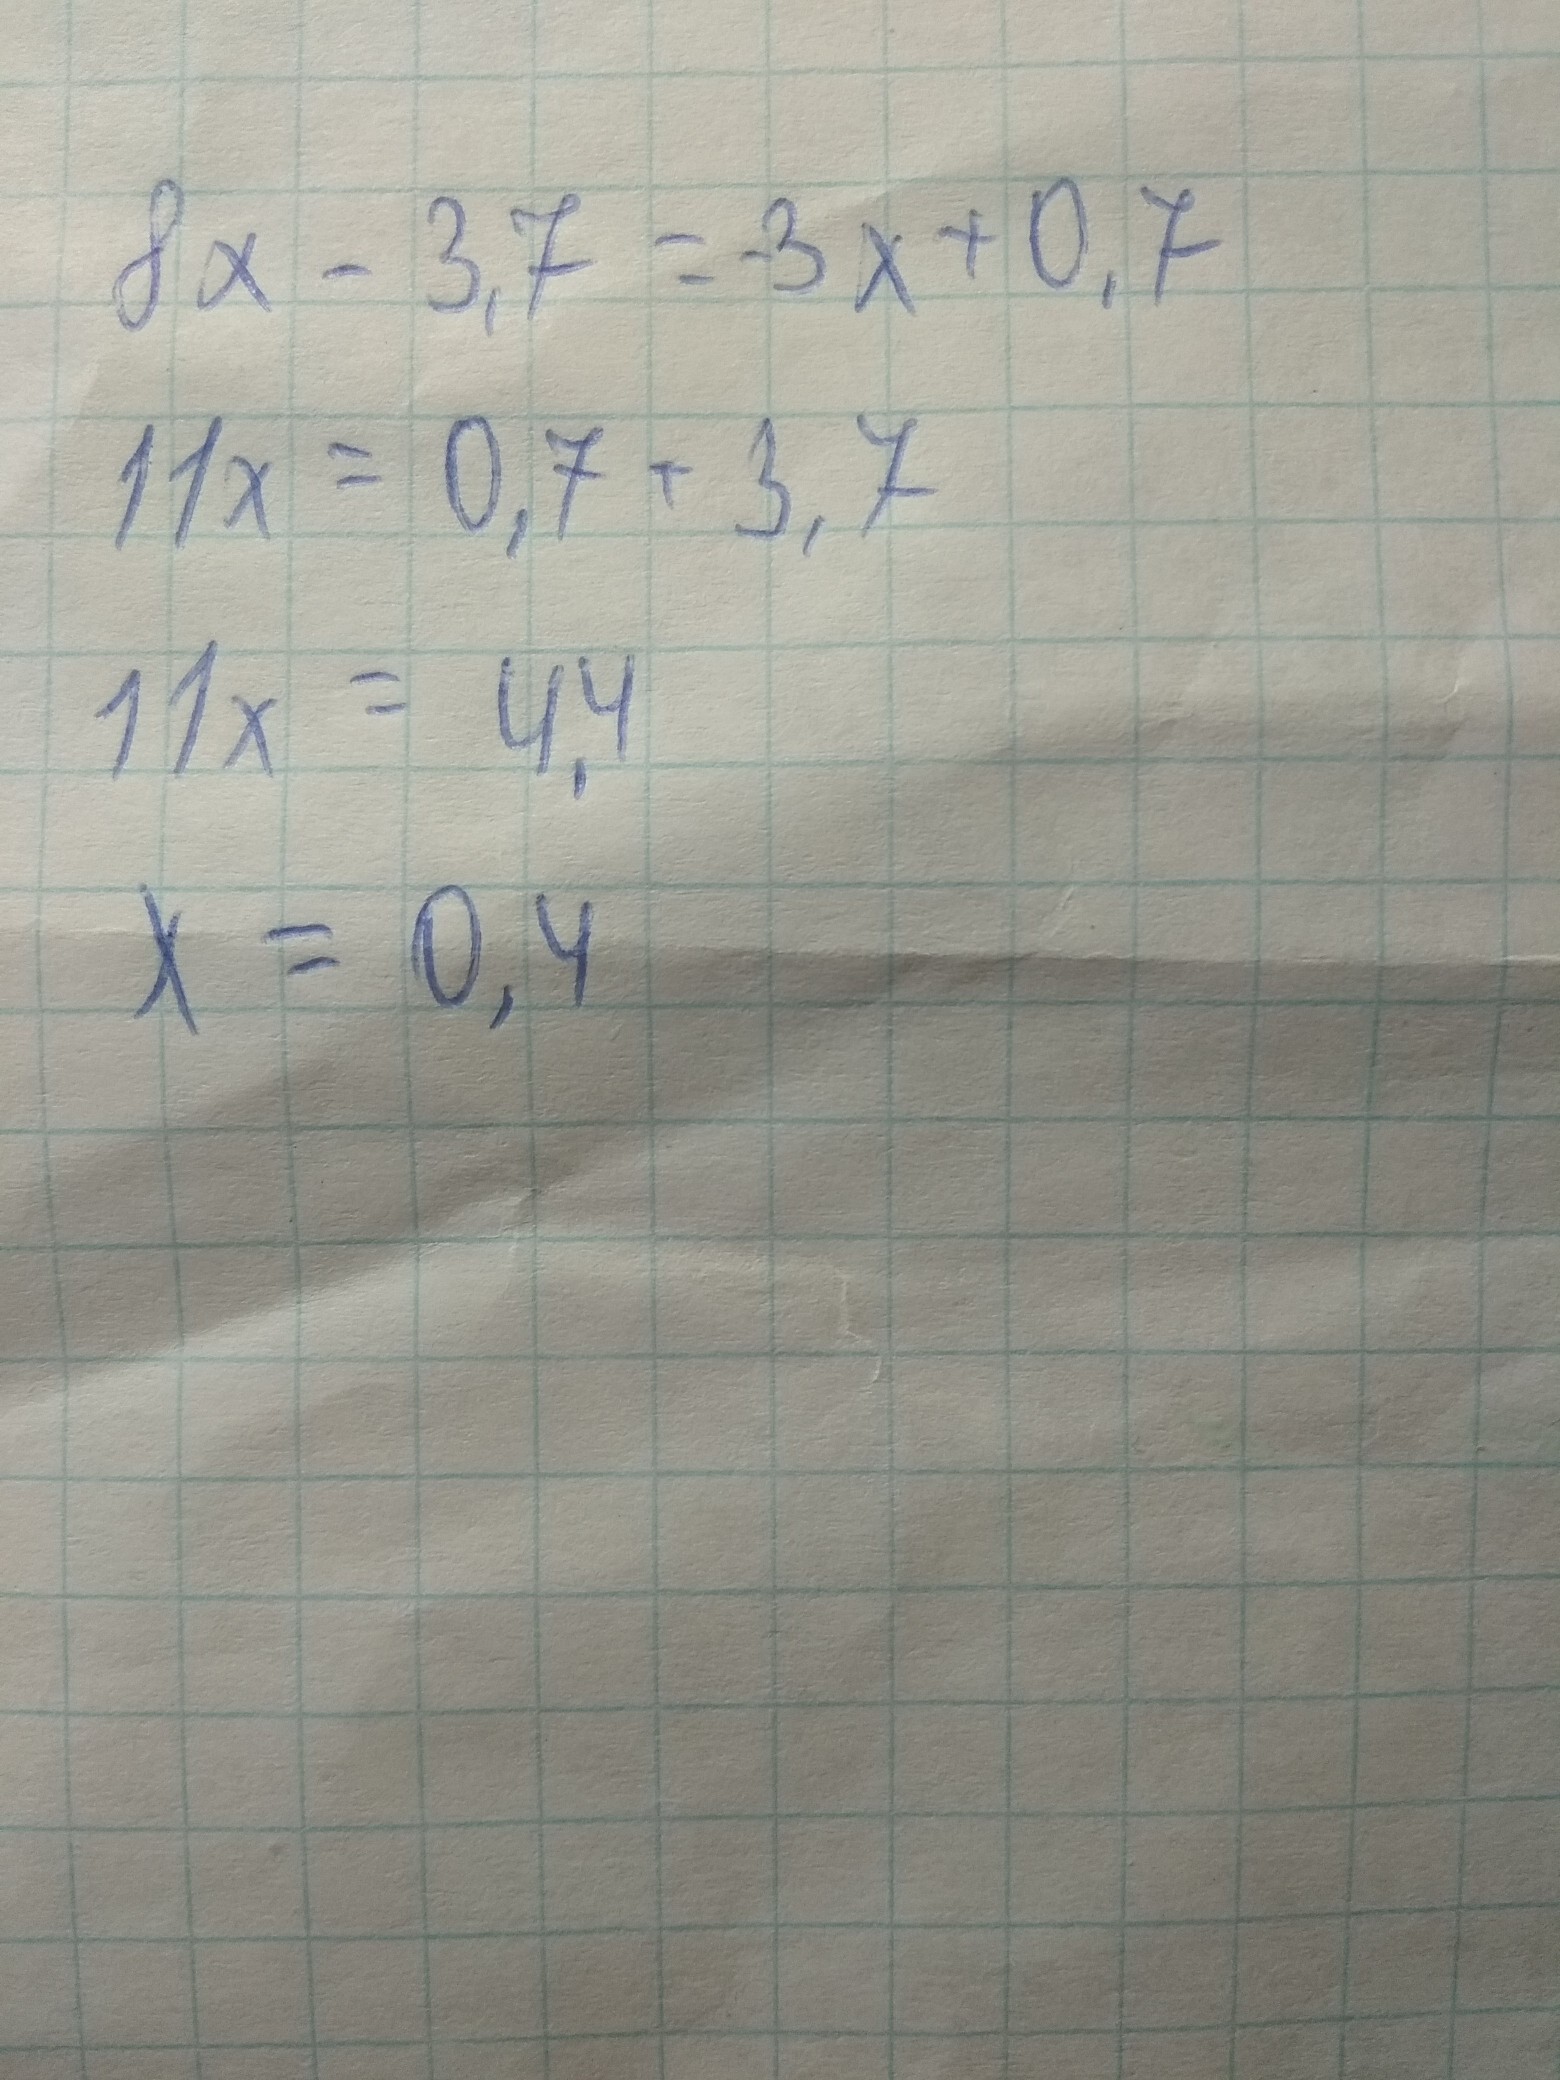 8x - 3,7 = -3x + 0,7
11x = 0,7 + 3,7
11x = 4,4
x = 0,4